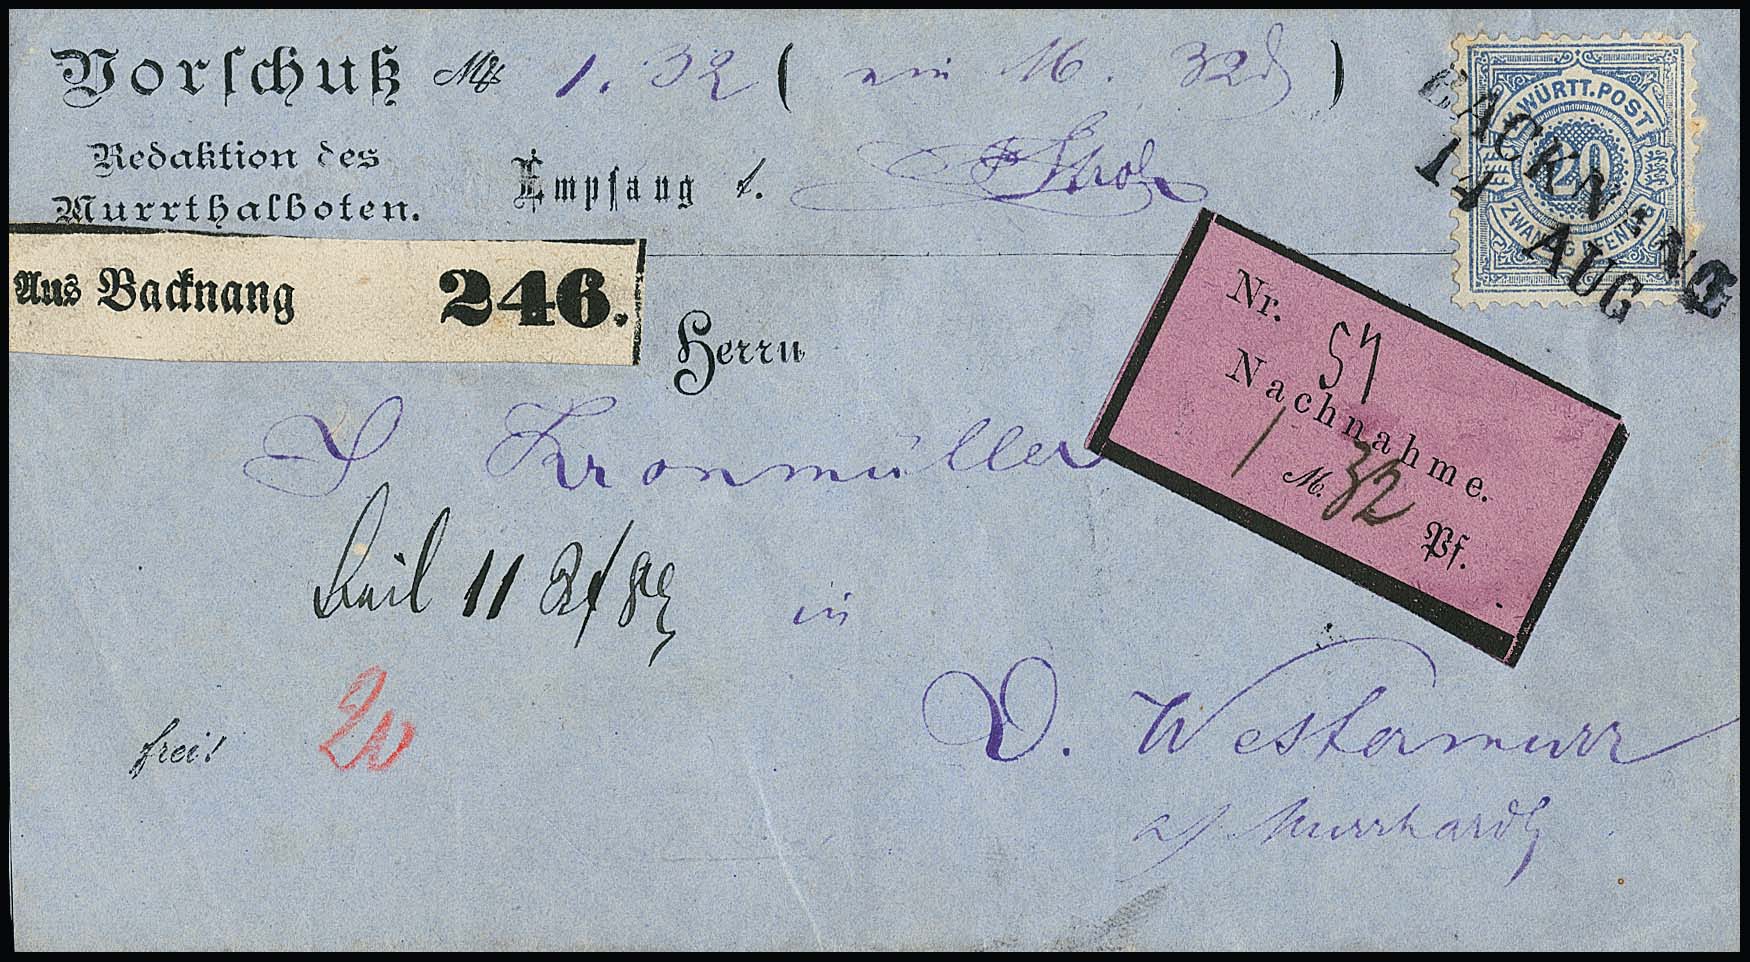 Vorschuß Mk 1.32 ( ein M. 32 )
Redaktion des
Murrthalboten.
Empfang b.
K. WÜRTT. POST
20
ZWANZIG PFENNIG
BACKNANG
14 AUG
Aus Backnang 246.
Herrn
Nr. 57
Nachnahme.
1 M. 32 Pf.
Kronmüller
11
in
frei!
20
O. Westermurr
a/ Murrhardt